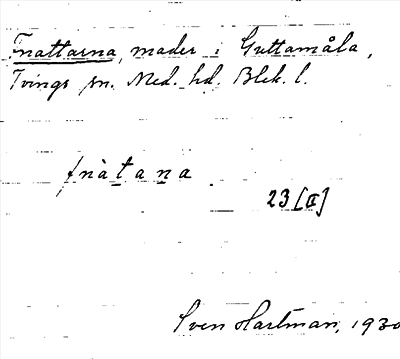 Fnattarna, mader i Guttamåla,
Tvings sn. Med. hd. Blek. l.
fnàtana
23 [a]
Sven Hartman, 1930